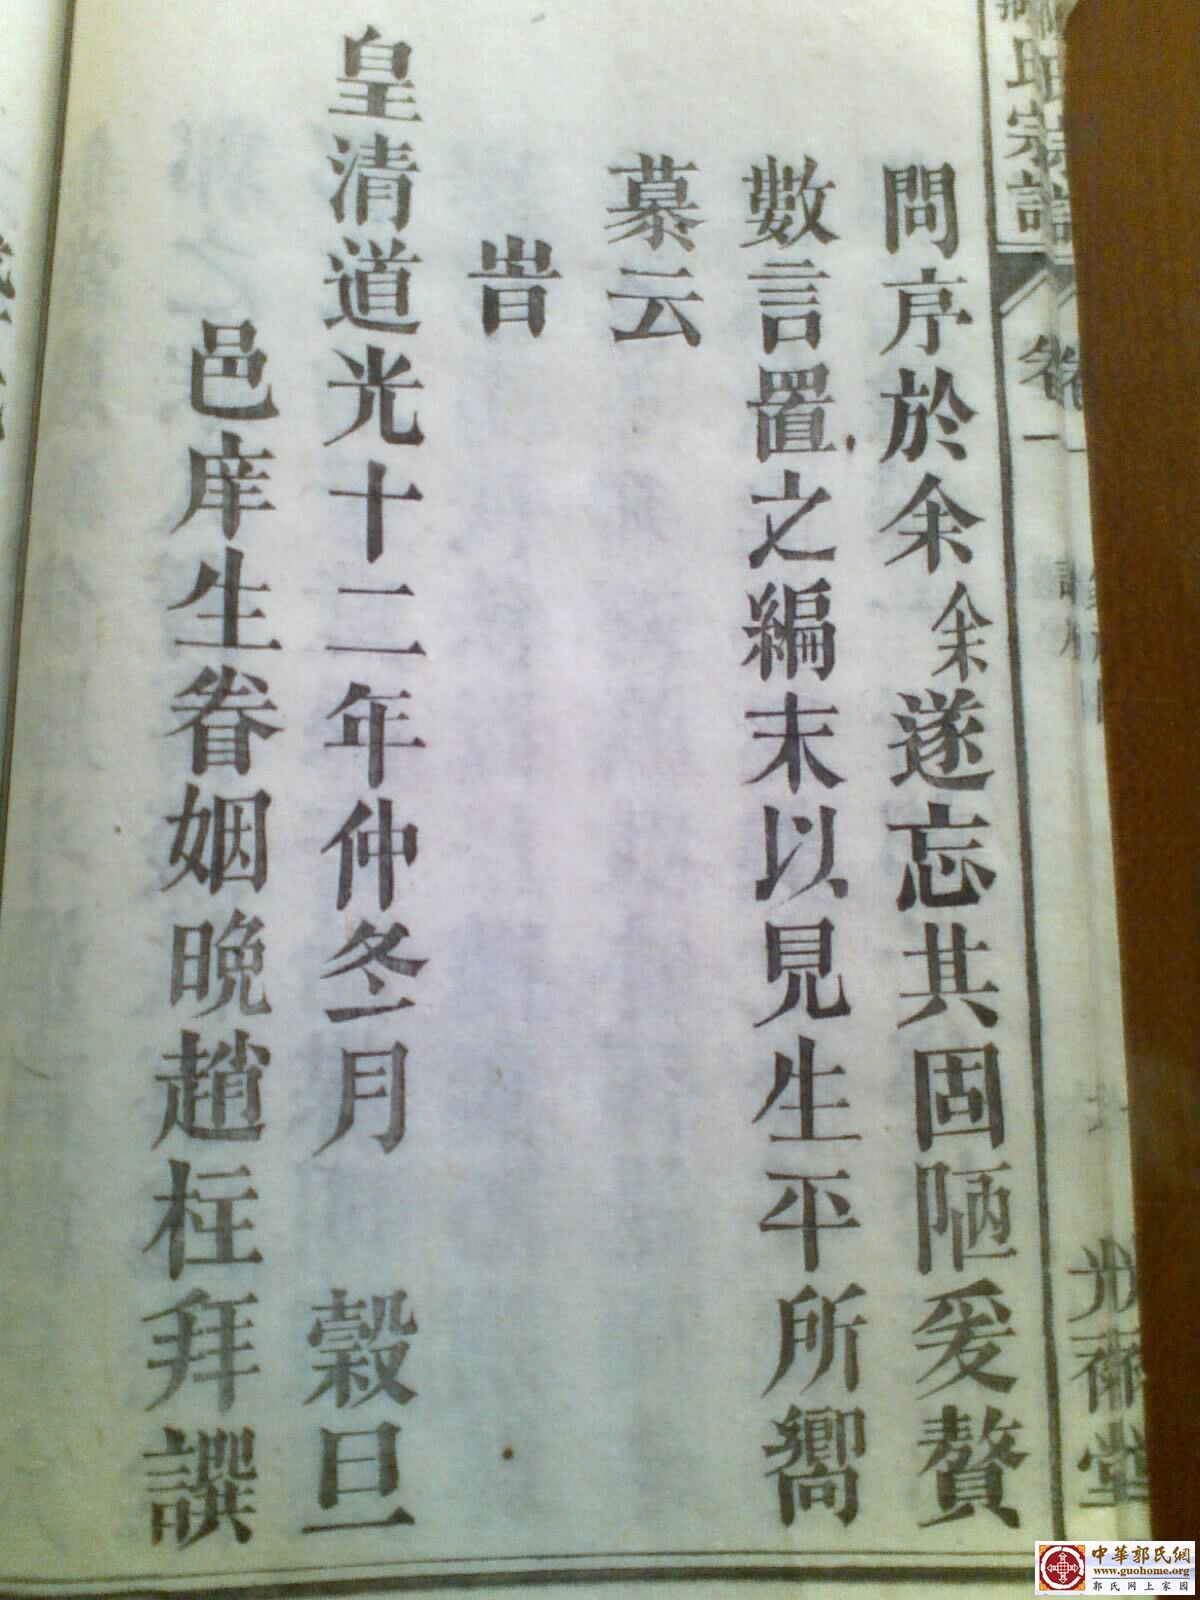 問序於余余遂忘共固陋爰贅
數言置之編末以見生平所嚮
慕云
旹
皇清道光十二年仲冬月 穀旦
邑庠生眷姻晚趙柱拜譔
氏宗譜
卷一
光裕堂
中華郭氏網
www.guohome.org
郭氏网上家园